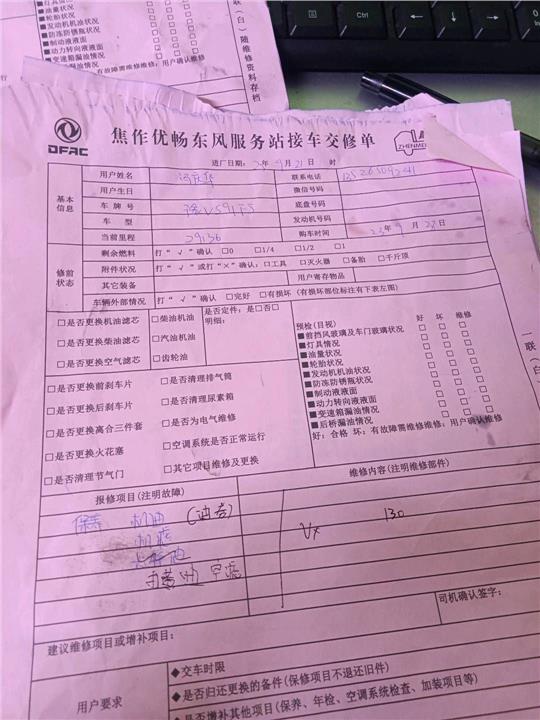 灯具情况
油量状况
轮胎状况
发动机机油状况
防冻防锈瓶状况
制动液液面
动力转向液液面
变速箱漏油情况
好：合格 坏：有故障需维修维修：用户确认维修
联（白）随维修资料存档
DFAC
焦作优畅东风服务站接车交修单
ZHENMEI
进厂日期： 年 9月21日 时
基本信息
用户姓名
联系电话
用户生日
微信号码
车牌号
底盘号码
车型
发动机号码
当前里程 29136
购车时间 23年9月 日
修前状态
剩余燃料 打“√”确认 □0 □1/4 □1/2 □1
附件状况 打“√”或打“×”确认：□工具 □灭火器 □备胎 □千斤顶
其它装备
用户寄存物品
车辆外部情况 打“√”确认 □完好 □有损坏（有损坏部位标注有下表左图）
□是否更换机油滤芯 □柴油机油 是否定件：是□否□
明细：
□是否更换柴油滤芯 □汽油机油
□是否更换空气滤芯 □齿轮油
预检(目视) 好 坏 维修
■前挡风玻璃及车门玻璃状况 □ □ □
■灯具情况 □ □ □
■油量状况 □ □ □
■轮胎状况 □ □ □
■发动机机油状况 □ □ □
■防冻防锈瓶状况 □ □ □
■制动液液面 □ □ □
■动力转向液液面 □ □ □
■变速箱漏油情况 □ □ □
■后桥漏油情况 □ □ □
好：合格 坏：有故障需维修维修：用户确认维修
□是否更换前刹车片 □是否清理排气筒
□是否更换后刹车片 □是否清理尿素箱
□是否更换离合三件套 □是否为电气维修
□是否更换火花塞 □空调系统是否正常运行
□是否清理节气门 □其它项目维修及更换
一联（白）
报修项目(注明故障)
维修内容(注明维修部件)
保养 机油
机滤
空滤
130
司机确认签字：
建议维修项目或增补项目：
用户要求
◆交车时限
◆是否归还更换的备件(保修项目不退还旧件)
◆是否增补其他项目(保养、年检、空调系统检查、加装项目等)